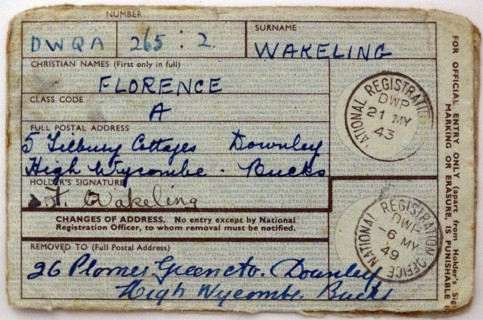 NUMBER
DWQA 265 : 2.
SURNAME
WAKELING
CHRISTIAN NAMES (First only in full)
FLORENCE
CLASS CODE
A
FULL POSTAL ADDRESS
5 Tilbury Cottages Downley
High Wycombe. Bucks
HOLDER'S SIGNATURE
F. Wakeling
CHANGES OF ADDRESS. No entry except by National
Registration Officer, to whom removal must be notified.
REMOVED TO (Full Postal Address)
26 Plomer Green Downley
High Wycombe. Bucks
NATIONAL REGISTRATION
DWP
21 MY
43
NATIONAL REGISTRATION OFFICE
DWP
-6 MY
49
FOR OFFICIAL ENTRY ONLY (apart from Holder's
MARKING OR ERASURE, IS PUNISHABLE